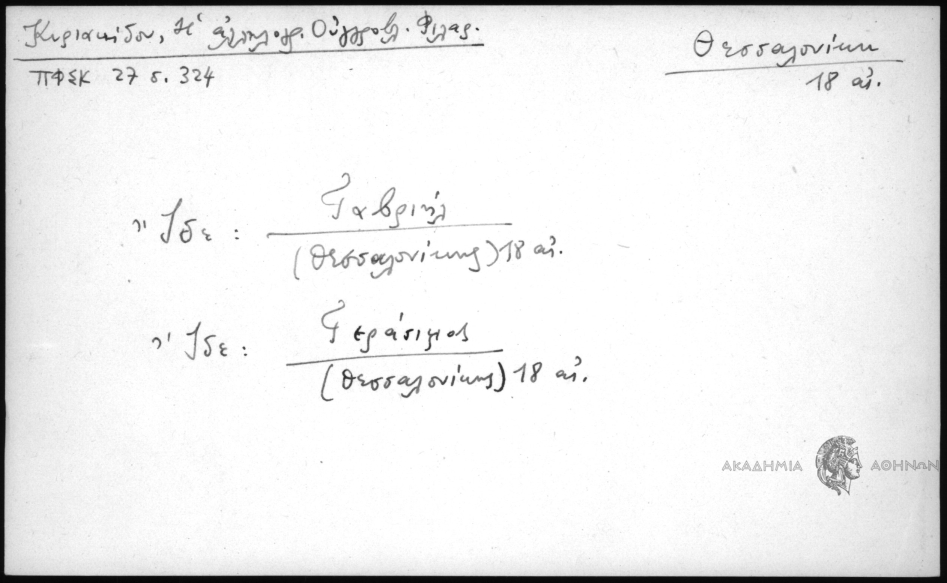 Κυριακίδου, Η' ἀλληλογρ. Οὐγγροβλ. Φιλαρ.
ΠΦΣΚ 27 σ. 324
Θεσσαλονίκη
18 αἰ.
Ἴδε : Γαβριήλ
(Θεσσαλονίκης) 18 αἰ.
Ἴδε : Γεράσιμος
(Θεσσαλονίκης) 18 αἰ.
ΑΚΑΔΗΜΙΑ ΑΘΗΝΩΝ